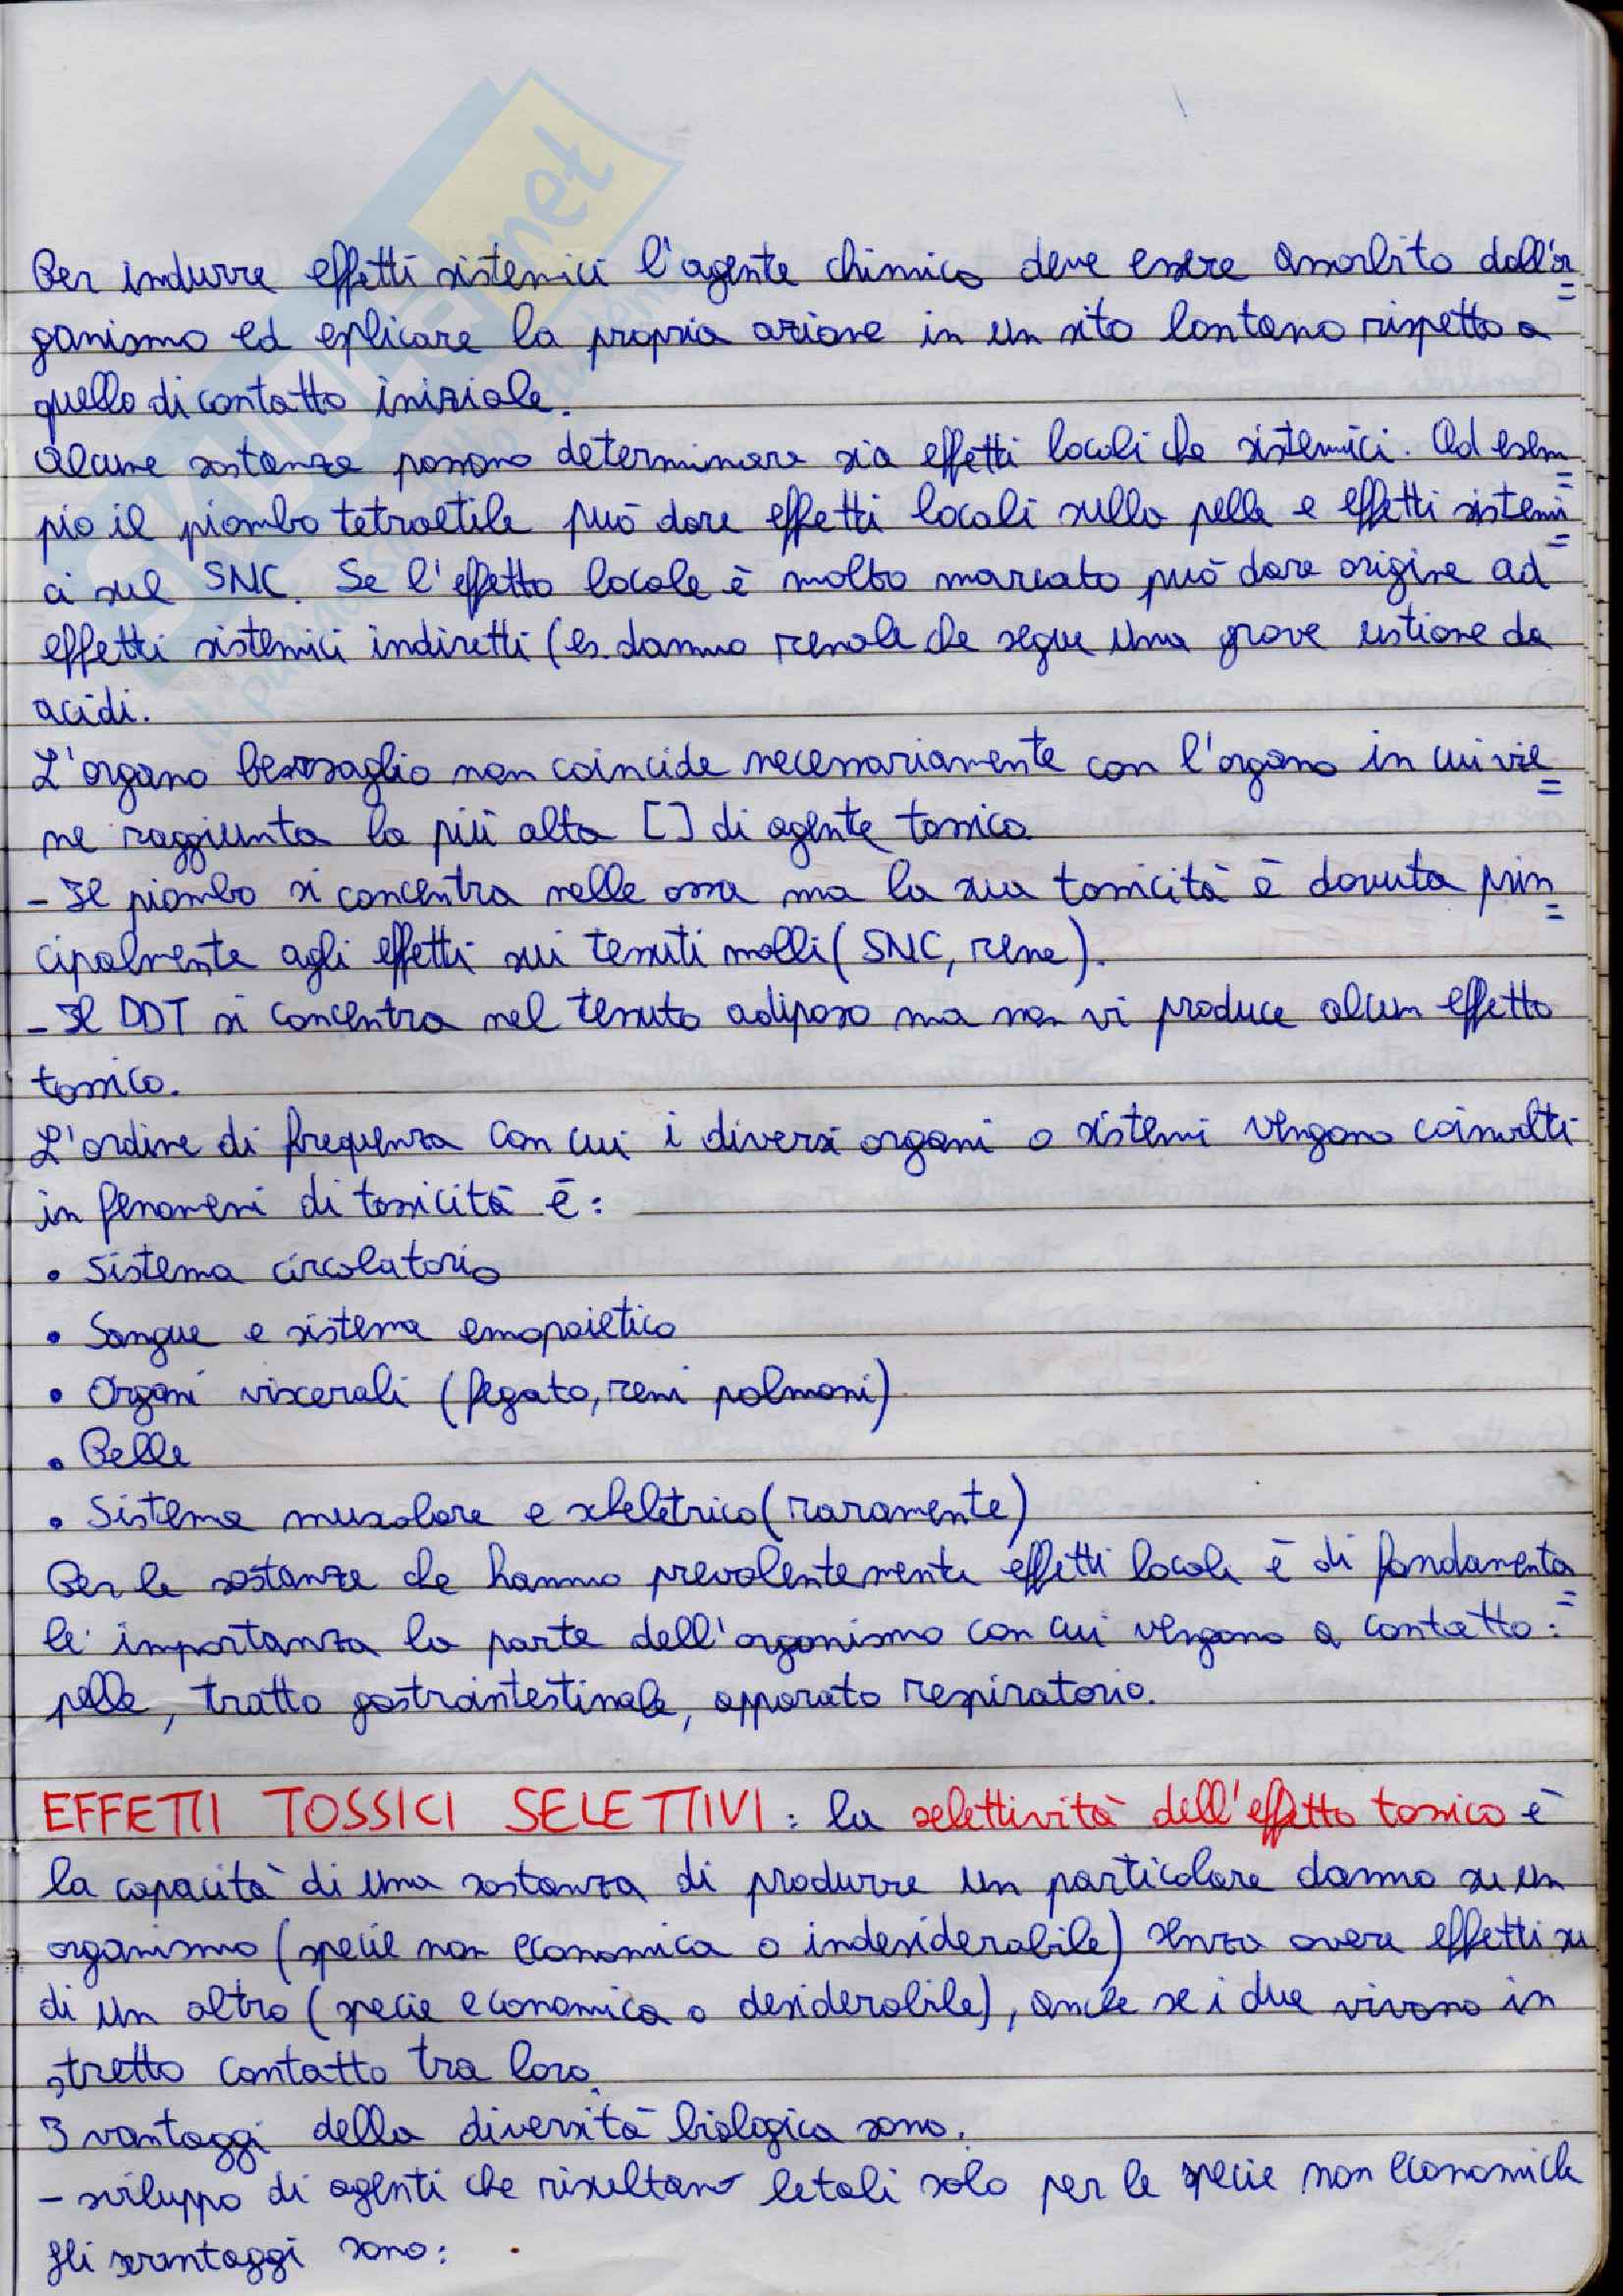 Per indurre effetti sistemici l'agente chimico deve essere assorbito dall'or=
ganismo ed esplicare la propria azione in un sito lontano rispetto a
quello di contatto iniziale.
Alcune sostanze possono determinare sia effetti locali che sistemici. Ad esem=
pio il piombo tetraetile può dare effetti locali sulla pelle e effetti sistemi=
ci sul SNC. Se l'effetto locale è molto marcato può dare origine ad
effetti sistemici indiretti (es. danno renale che segue una grave ustione da
acidi.
L'organo bersaglio non coincide necessariamente con l'organo in cui vie=
ne raggiunta la più alta [] di agente tossico
- Il piombo si concentra nelle ossa ma la sua tossicità è dovuta prin=
cipalmente agli effetti sui tessuti molli (SNC, rene).
- Il DDT si concentra nel tessuto adiposo ma non vi produce alcun effetto
tossico.
L'ordine di frequenza con cui i diversi organi o sistemi vengono coinvolti
in fenomeni di tossicità è:
• Sistema circolatorio
• Sangue e sistema emopoietico
• Organi viscerali (fegato, reni polmoni)
• Pelle
• Sistema muscolare e scheletrico (raramente)
Per le sostanze che hanno prevalentemente effetti locali è di fondamenta=
le importanza la parte dell'organismo con cui vengono a contatto:
pelle, tratto gastrointestinale, apparato respiratorio.
EFFETTI TOSSICI SELETTIVI: la selettività dell'effetto tossico è
la capacità di una sostanza di produrre un particolare danno su un
organismo (specie non economica o indesiderabile) senza avere effetti su
di un altro (specie economica o desiderabile), anche se i due vivono in
stretto contatto tra loro.
I vantaggi della diversità biologica sono.
- sviluppo di agenti che risultano letali solo per le specie non economiche
gli svantaggi sono: